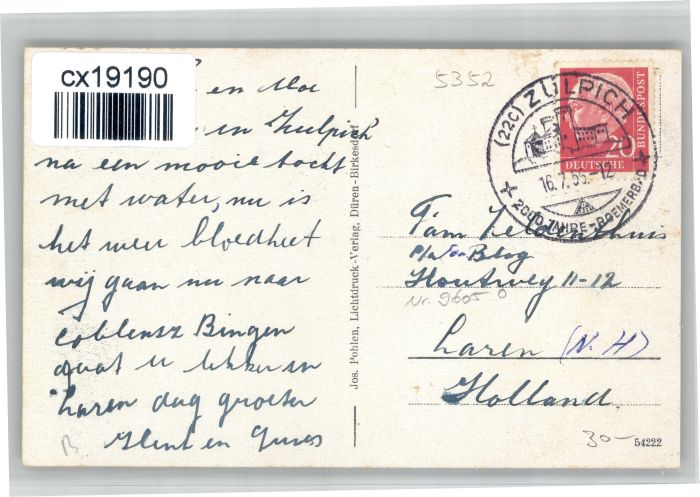 cx19190
en Moe
en Zulpich
na een mooie tocht
met water, nu is
het weer bloedheet
wij gaan nu naar
Coblensz Bingen
gaat u lekker in
Laren dag groeten
en
B
Jos. Pohlen, Lichtdruck-Verlag, Düren-Birkesdorf
5352
(22c) ZÜLPICH
16.7.55.-12
2000 JAHRE-ROEMERBAD
20
DEUTSCHE
BUNDESPOST
Fam Veldenthuis
p/a Blog
Houtweg 11-12
Nr. 9605
Laren (N. H)
Holland
30-
54222